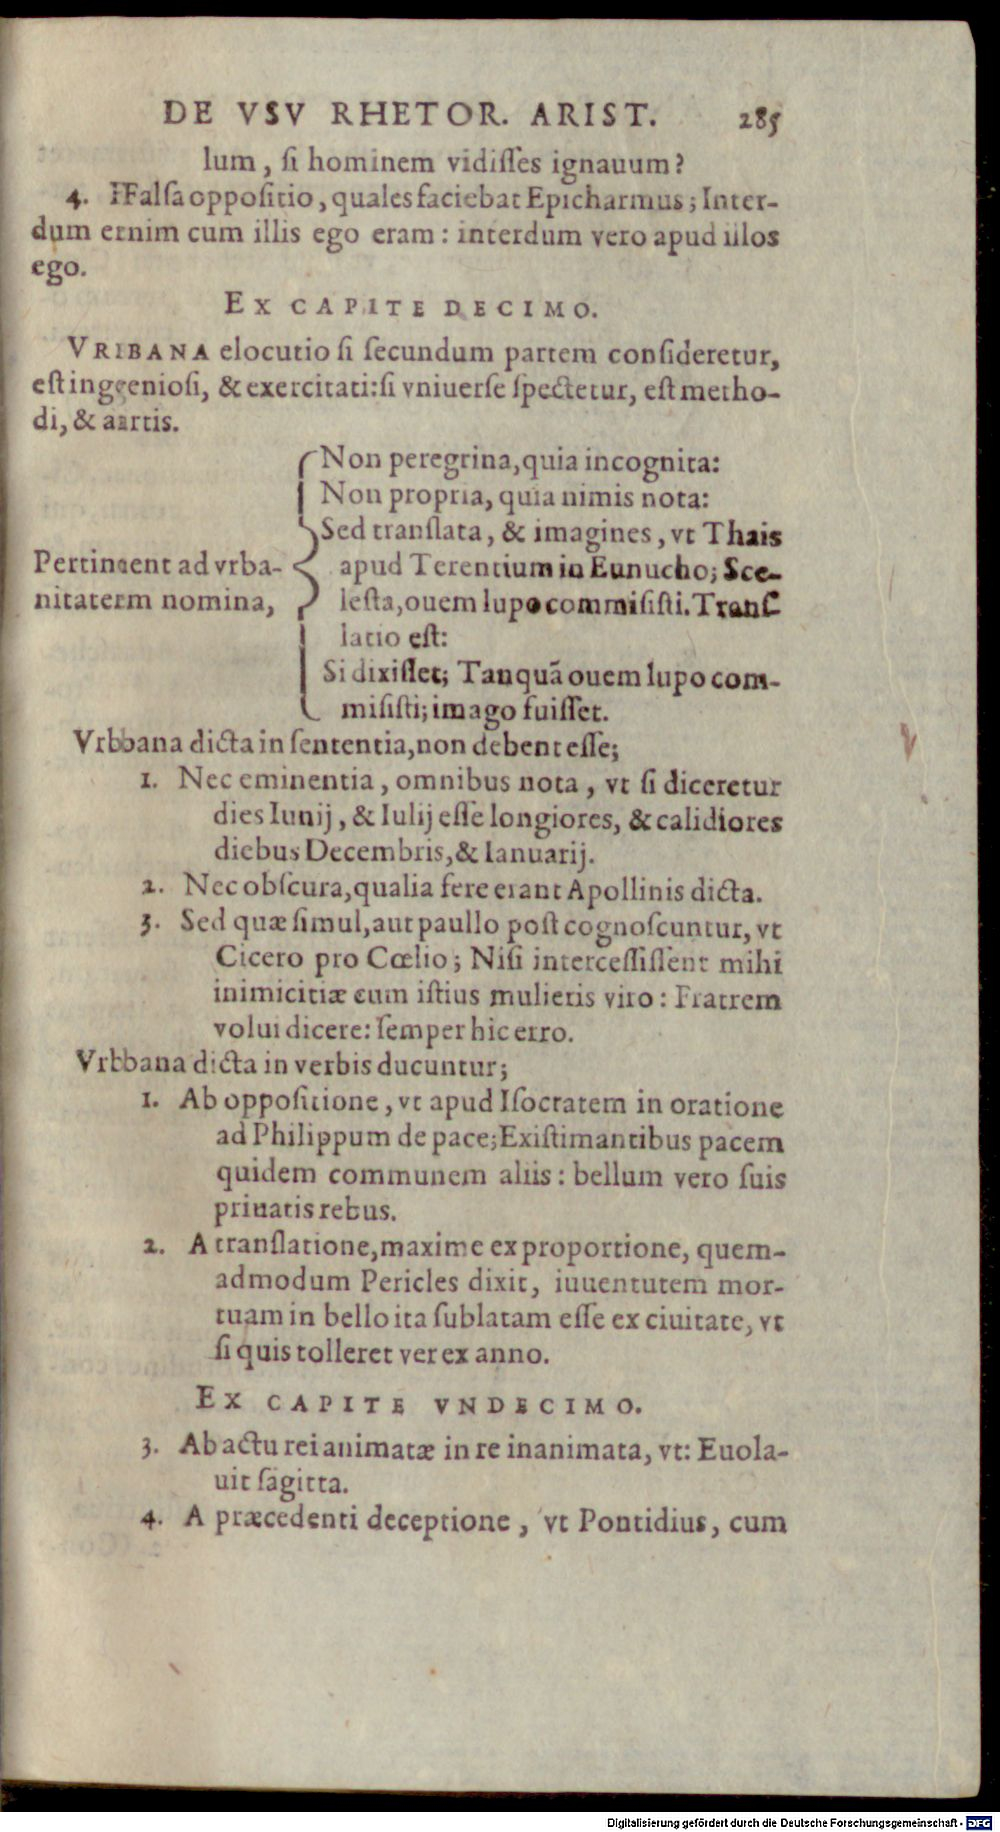 DE VSV RHETOR. ARIST. 285
lum, ſi hominem vidiſſes ignauum?
4. Falſa oppoſitio, quales faciebat Epicharmus; Inter-
dum etnim cum illis ego eram: interdum vero apud illos
ego.
EX CAPITE DECIMO.
VRBANA elocutio ſi ſecundum partem conſideretur,
eſt ingenioſi, & exercitati: ſi vniuerſe ſpectetur, eſt metho-
di, & artis.
Non peregrina, quia incognita:
Non propria, quia nimis nota:
Sed tranſlata, & imagines, vt Thais
Pertinent ad vrba- apud Terentium in Eunucho; Sce-
nitatem nomina, leſta, ouem lupo commiſiſti. Tranſ
latio eſt:
Si dixiſſet; Tanquã ouem lupo com-
miſiſti; imago fuiſſet.
Vrbana dicta in ſententia, non debent eſſe;
1. Nec eminentia, omnibus nota, vt ſi diceretur
dies Iunij, & Iulij eſſe longiores, & calidiores
diebus Decembris, & Ianuarij.
2. Nec obſcura, qualia fere erant Apollinis dicta.
3. Sed quæ ſimul, aut paullo poſt cognoſcuntur, vt
Cicero pro Cœlio; Niſi interceſſiſſent mihi
inimicitiæ cum iſtius mulieris viro: Fratrem
volui dicere: ſemper hic erro.
Vrbana dicta in verbis ducuntur;
1. Ab oppoſitione, vt apud Iſocratem in oratione
ad Philippum de pace; Exiſtimantibus pacem
quidem communem aliis: bellum vero ſuis
priuatis rebus.
2. A tranſlatione, maxime ex proportione, quem-
admodum Pericles dixit, iuuentutem mor-
tuam in bello ita ſublatam eſſe ex ciuitate, vt
ſi quis tolleret ver ex anno.
EX CAPITE VNDECIMO.
3. Ab actu rei animatæ in re inanimata, vt: Euola-
uit ſagitta.
4. A præcedenti deceptione, vt Pontidius, cum
Digitalisierung gefördert durch die Deutsche Forschungsgemeinschaft - DFG